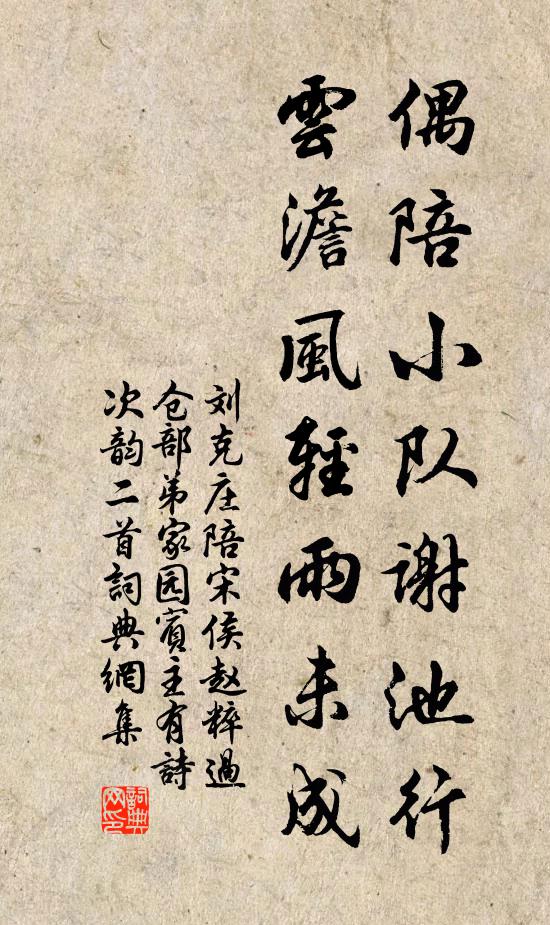 偶陪小队谢池行
雲澹風輕雨未成
刘克庄陪宋侯赵粹過
仓部弟家园賓主有詩
次韵二首詞典網集
詞典
网印